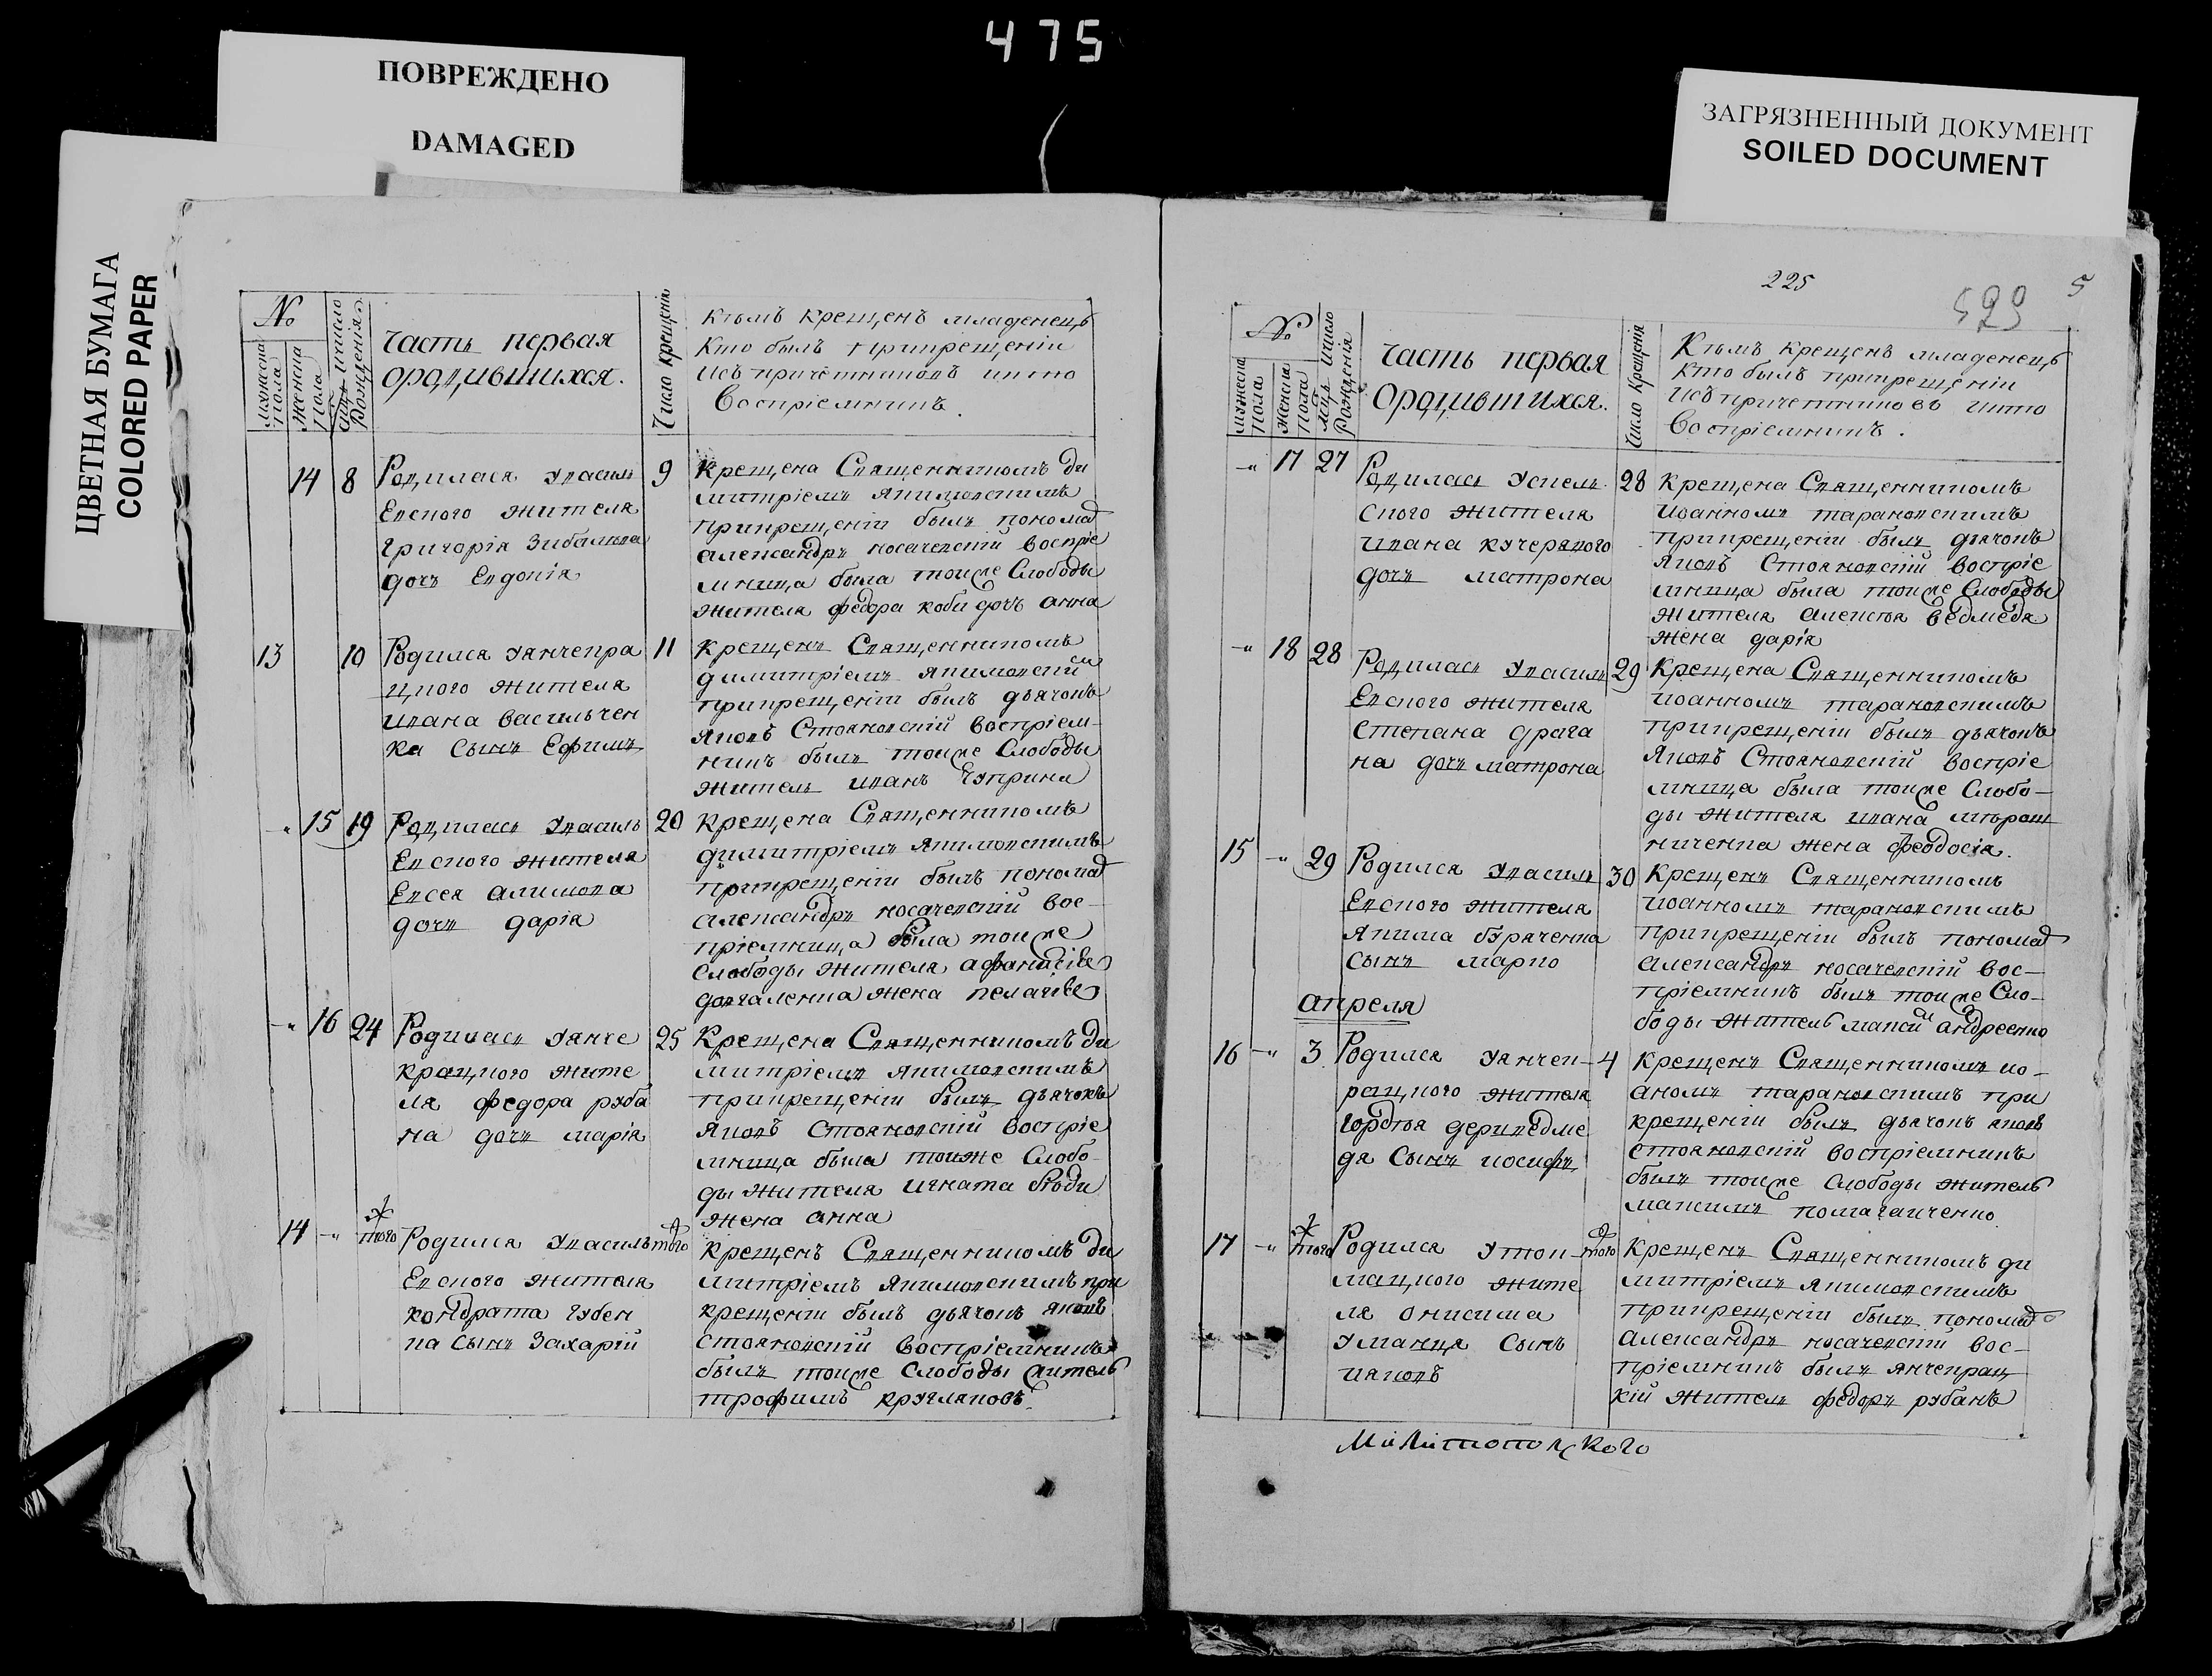 475
ПОВРЕЖДЕНО
DAMAGED
ЦВЕТНАЯ БУМАГА
COLORED PAPER
ЗАГРЯЗНЕННЫЙ ДОКУМЕНТ
SOILED DOCUMENT
№
мужеска пола
женска пола
число рожденія
часть первая
ородившихся.
Число крещенія
кѣмъ крещенъ младенецъ
кто былъ прикрещеніи
исъ причетниковъ икто
Воспріемникъ.
14 8 Родилася увасиль
Евского жителя
григорія Зибалька
дочь Евдокія
9 крещена Священникомъ ди
митріемъ якимовскимъ
прикрещеніи былъ понома
александръ носачевскій воспріе
мница была тоиже Слободы
жителя федора коби дочъ анна
13 10 Родился уянчекра
цкого жителя
ивана васильчен
ка Сынъ Ефимъ
11 крещенъ Священникомъ
димитріемъ якимовским
прикрещеніи былъ дьячокъ
яковъ Стояновскій воспріем-
никъ былъ тоиже Слободы
житель иванъ Чуприна
15 19 Родилась увасиль
Евского жителя
Евсея алимова
дочь дарія
20 крещена Священникомъ
димитріемъ якимовскимъ
прикрещеніи былъ понома
александръ носачевскій вос-
пріемница была тоиже
Слободы жителя афанасіа
довгаленка жена пелагіе
16 24 Родилась уянче
крацкого жите
ля федора руба
на дочь марія
25 Крещена Священникомъ ди
митріемъ якимовскимъ
прикрещеніи былъ дьячокъ
яковъ Стояновскій воспріе
мница была тоиже Слобо-
ды жителя игната
жена анна
14 того Родился увасиль
Евского жителя
кондрата губен
ка Сынъ Захарій
того крещенъ Священникомъ ди
митріемъ якимовскимъ при
крещеніи былъ дьячокъ яковъ
стояновскій воспріемникъ
былъ тоиже Слободы житель
трофимъ кругляковъ
225
529
5
№
мужеска пола
женска пола
мцъ число рожденія
часть первая
Ородившихся.
число крещенія
Кѣмъ крещенъ младенецъ
кто былъ прикрещеніи
исъ причетниковъ икто
Воспріемникъ.
17 27 Родилась успель
ского жителя
ивана кучерявого
дочь матрона
28 крещена Священникомъ
иоанномъ тарановскимъ
прикрещеніи былъ дьячокъ
яковъ Стояновскій воспріе
мница была тоиже Слободы
жителя алексѣя ведмедя
жена дарія
18 28 Родилась увасиль
Евского жителя
степана драга
на дочь матрона
29 Крещена Священникомъ
иоанномъ тарановскимъ
прикрещеніи былъ дьячокъ
яковъ Стояновскій воспріе
мница была тоиже Слобо-
ды жителя ивана мѣрош
ниченка жена феодосія.
15 29 Родился увасиль
Евского жителя
якима бураченка
сынъ марко
30 крещенъ Священникомъ
иоанномъ тарановскимъ
прикрещеніи былъ понома
александръ носачевскій вос-
пріемникъ былъ тоиже Сло-
боды житель макси андреенко
апреля
16 3 Родился уянчек-
рацкого жителя
гордѣя дериведме
дя Сынъ иосифъ
4 крещенъ Священникомъ ио-
аномъ тарановскимъ при
крещеніи былъ дьячокъ яковъ
стояновскій воспріемникъ
былъ тоиже слободы житель
максимъ
17 того Родился уток-
мацкого жите
ля онисима
уманця сынъ
иаковъ
того крещенъ Священникомъ ди
митріемъ якимовскимъ
прикрещеніи былъ понома
александръ носачевскій вос-
пріемникъ былъ янчекрац
кій житель федоръ рубанъ
Мѣлитопольского